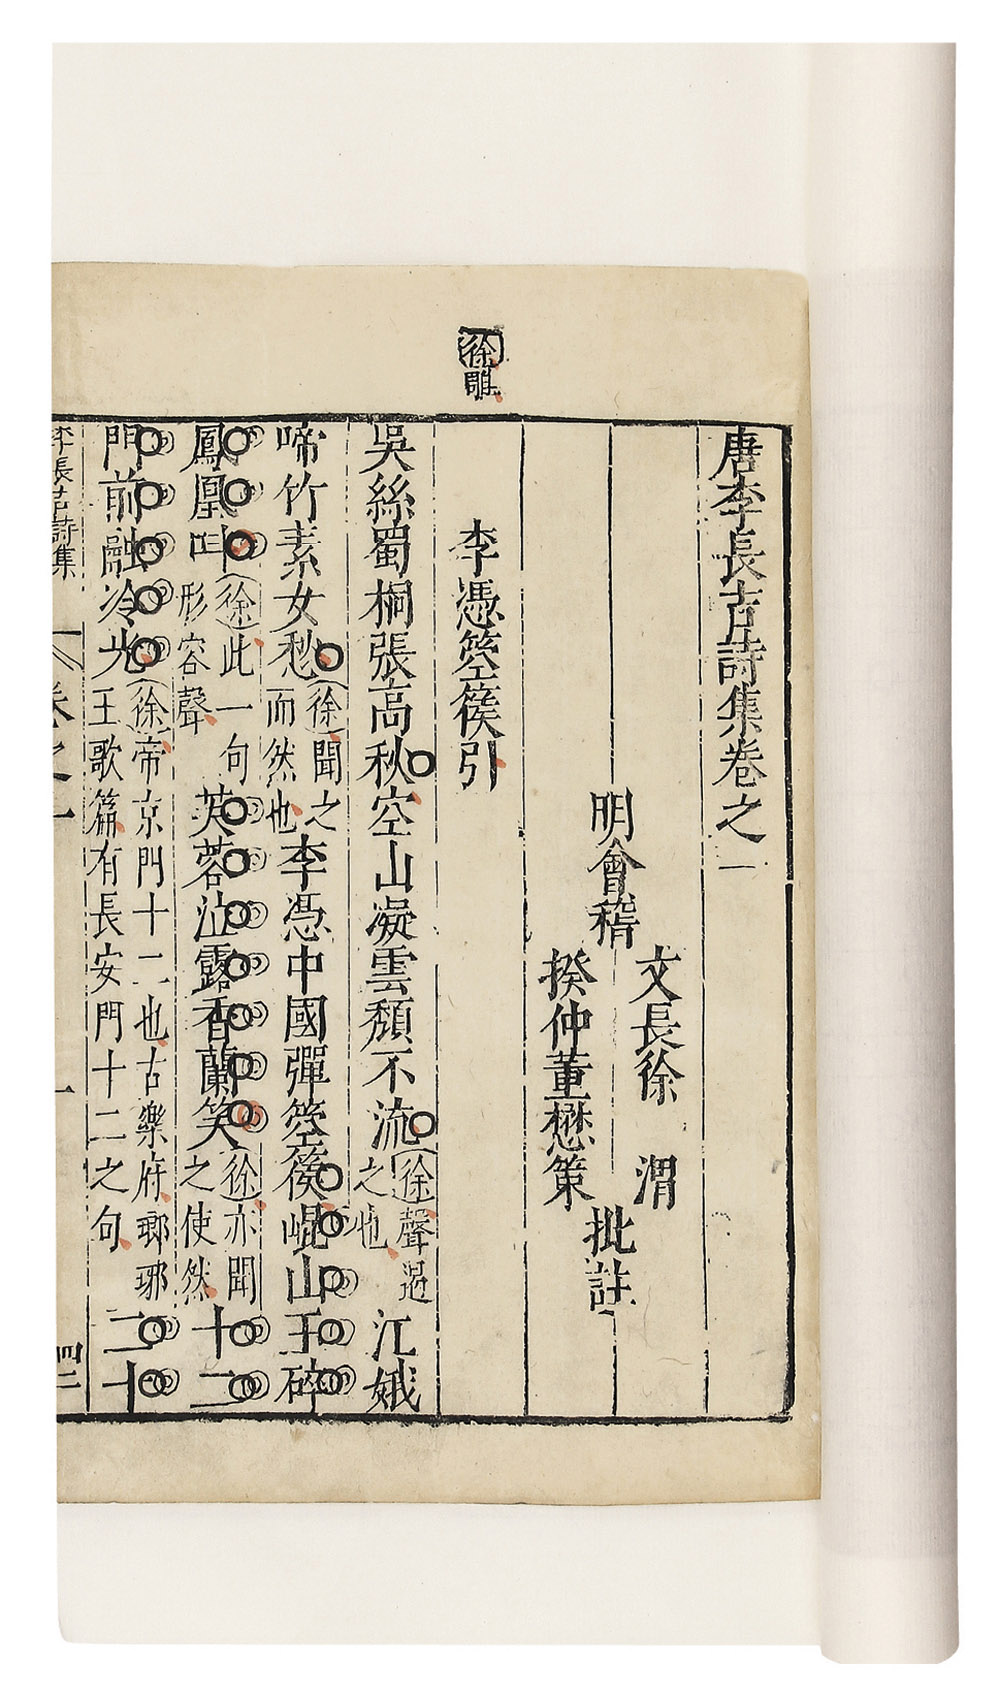 徐雕
唐李長吉詩集卷之一
明會稽
文長徐渭
揆仲董懋策
批註
李憑箜篌引
吳絲蜀桐張高秋空山凝雲頹不流徐聲遏之也江娥
啼竹素女愁徐聞之而然也李憑中國彈箜篌崐山玉碎
鳳凰叫徐此一句形容聲芙蓉泣露香蘭笑徐亦聞之使然十二
門前融冷光徐帝京門十二也古樂府瑯琊王歌篇有長安門十二之句二十
李長吉詩集 卷之一 一